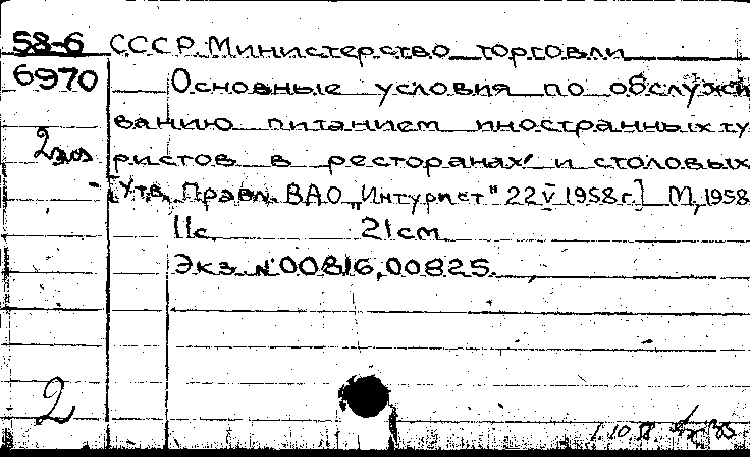 58-6 СССР. Министерство торговли
6970 Основные условия по обслужи
ванию питанием иностранных ту
2 экз ристов в ресторанах и столовых
[Утв. Правл. ВАО „Интурист" 22 V 1958 г.] М, 1958
11с. 21 см
Экз. №00816, 00825.
2